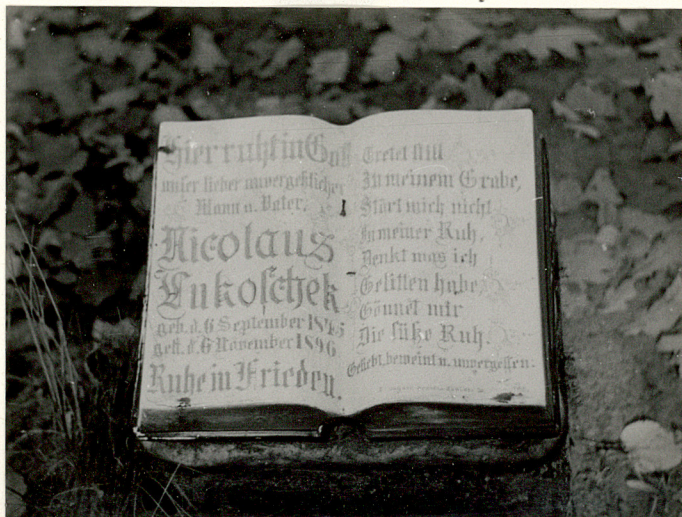 Hier ruht in Gott
unser lieber unvergeßlicher
Mann u. Vater,
Nicolaus
Lukoschek
geb. d. 6 September 1845
gest. d. 6 November 1896
Ruhe in Frieden.
Tretet still
Zu meinem Grabe,
Stört mich nicht
In meiner Ruh,
Denkt was ich
Gelitten habe,
Gönnet mir
Die süße Ruh.
Geliebt, beweint u. unvergessen.